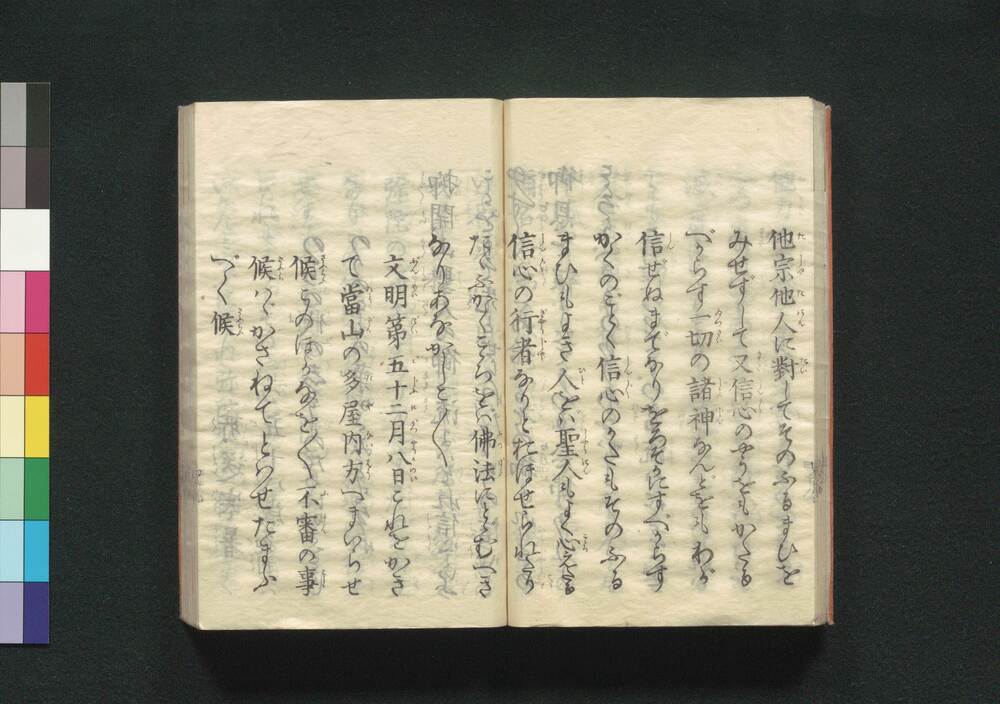 他宗他人に對してそのふるまひを
みせずして又信心のやうをもかたる
べからす一切の諸神なんどをもわが
信ぜぬまでなりをろそかにすべからす
かくのごとく信心のかたもそのふる
まひもよき人をは聖人もよく心えたる
信心の行者なりとおほせられたり
たゝふかくこゝろをは佛法にとゞむべき
なりあなかしこ〳〵
文明第五十二月八日これをかき
て當山の多屋内方へまいらせ
候このほかなを〳〵不審の事
候はゝかさねてとはせたまふ
べく候